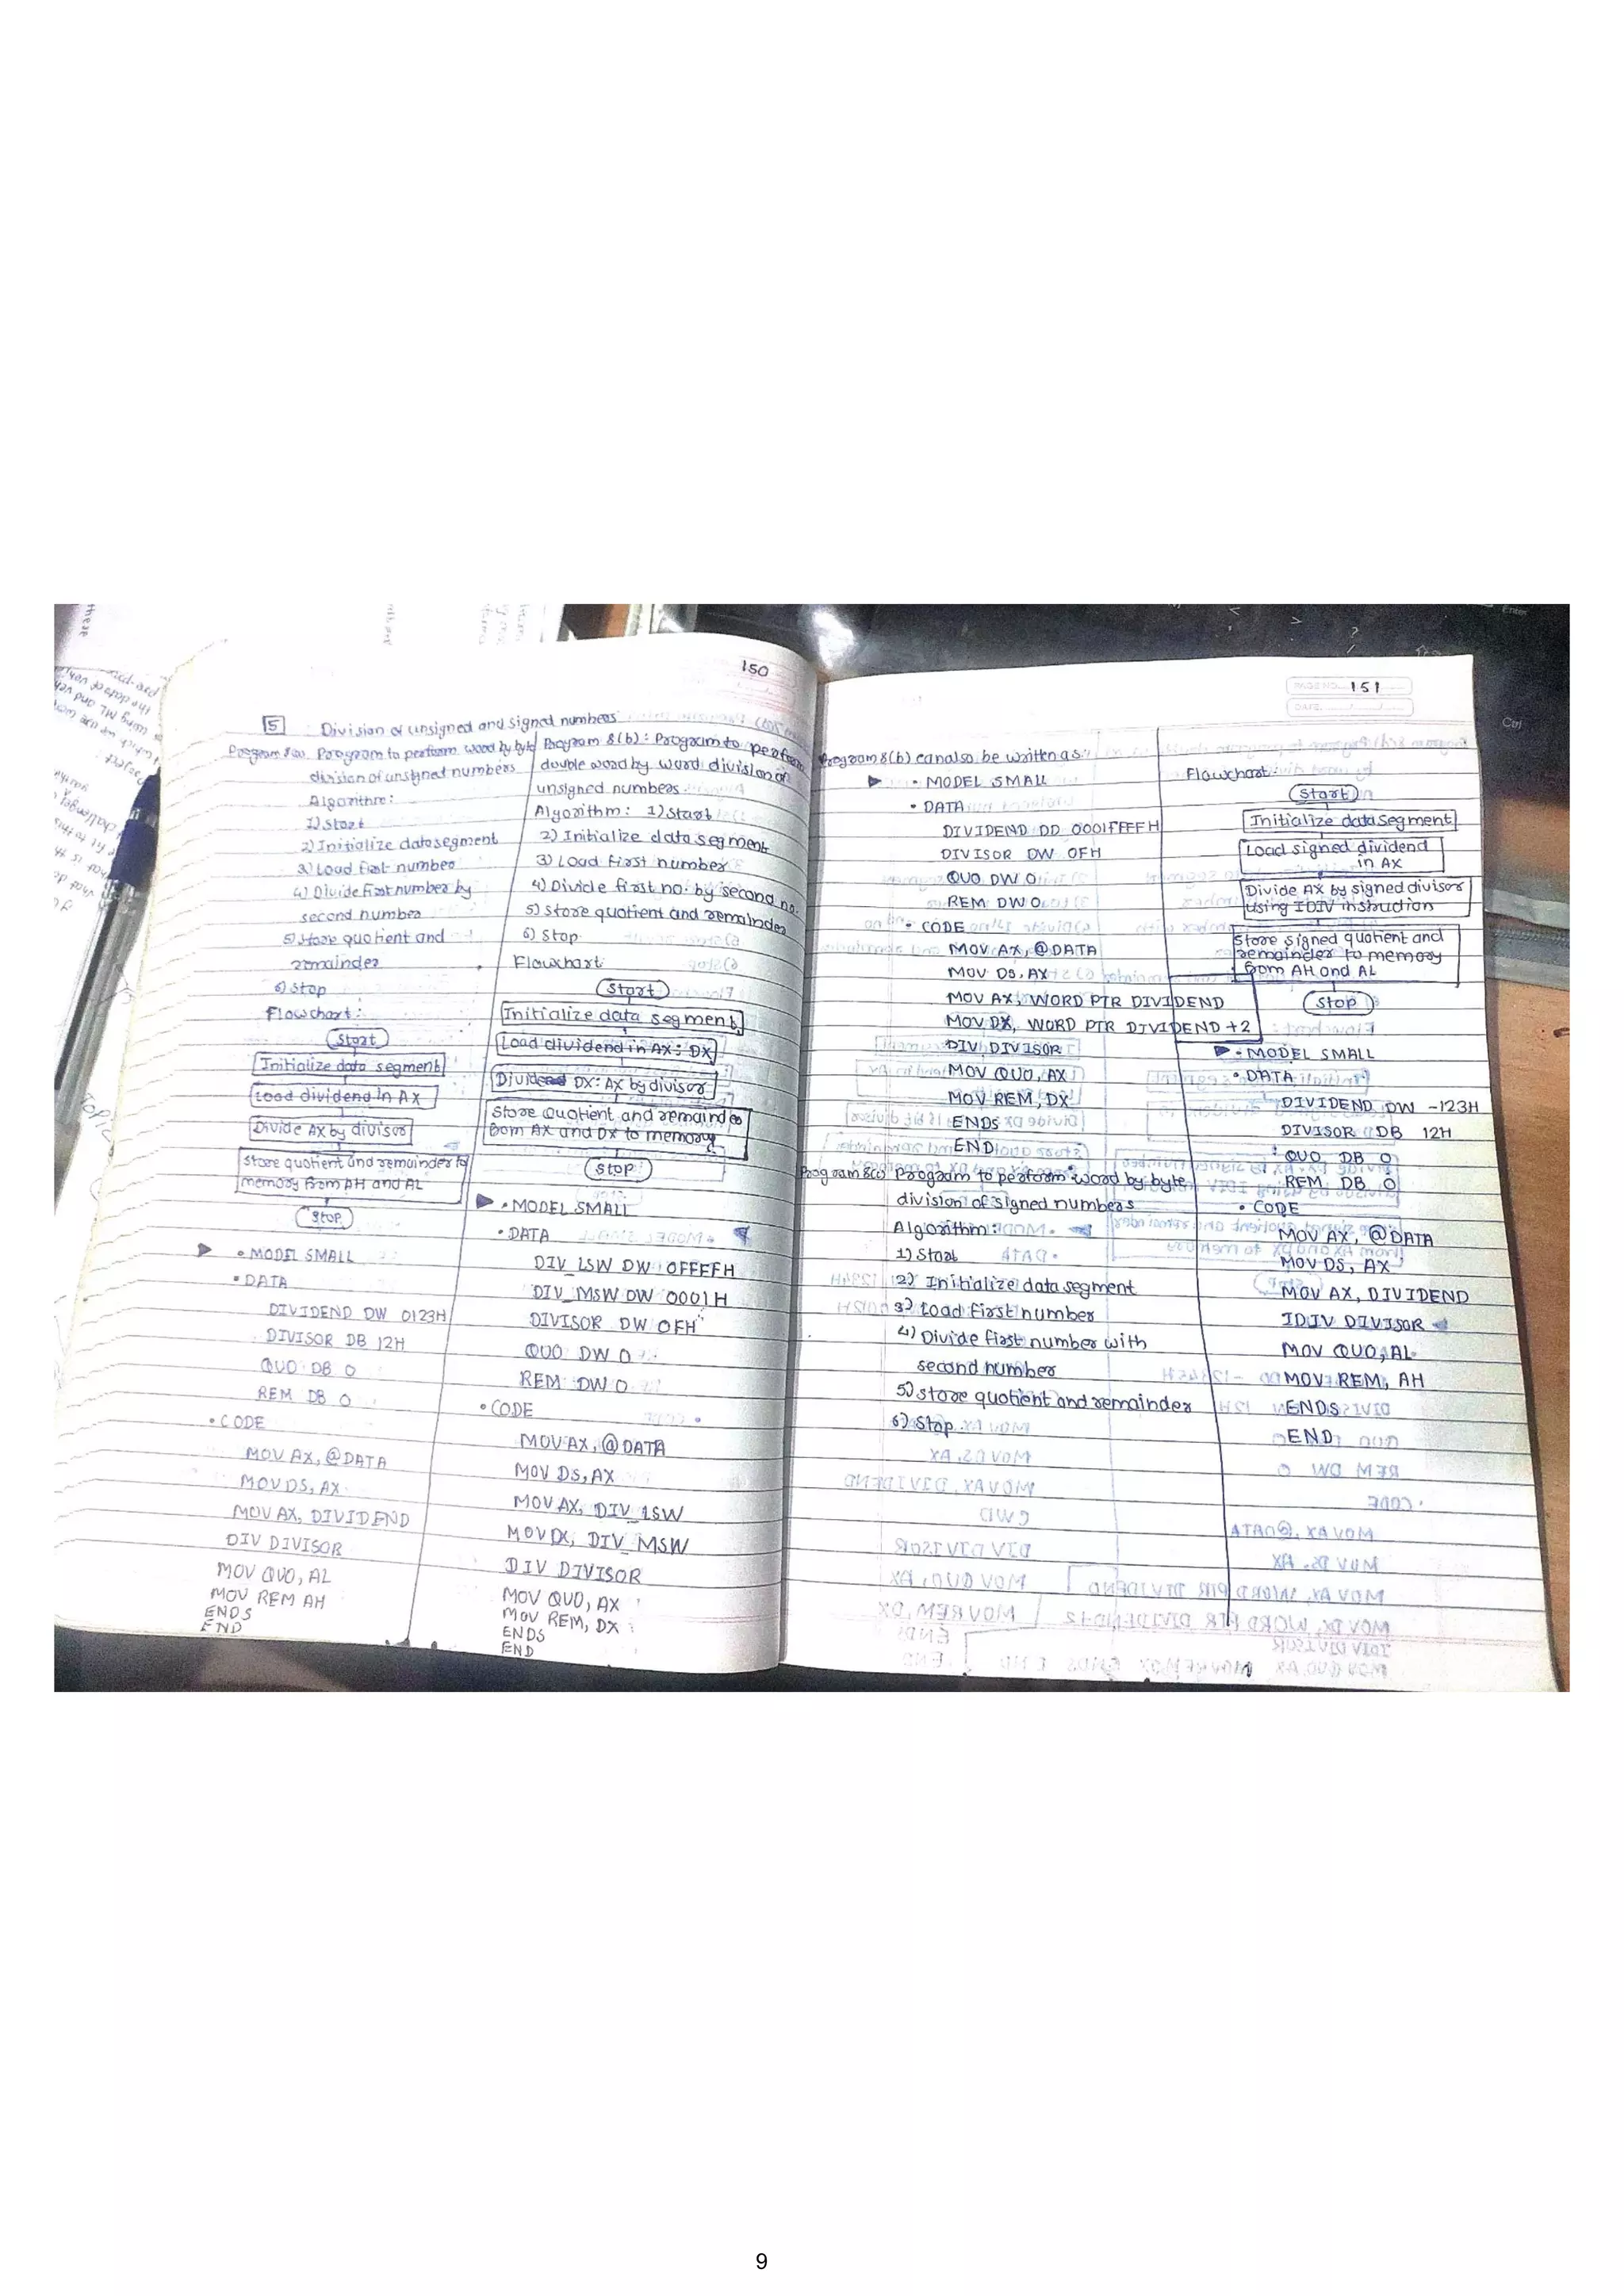 150
5 Division of unsigned and signed numbers
Program 8(a) Program to perform word by byte
division of unsigned numbers
Algorithm:
1) Start
2) Initialize data segment
3) Load first number
4) Divide first number by
second number
5) Store quotient and
remainder
6) Stop
Flowchart:
Start
Initialize data segment
Load dividend in AX
Divide AX by divisor
Store quotient and remainder to
memory from AH and AL
Stop
.MODEL SMALL
.DATA
DIVIDEND DW 0123H
DIVISOR DB 12H
QUO DB 0
REM DB 0
.CODE
MOV AX, @DATA
MOV DS, AX
MOV AX, DIVIDEND
DIV DIVISOR
MOV QUO, AL
MOV REM AH
ENDS
END
Program 8(b): Program to perform
double word by word division of
unsigned numbers
Algorithm: 1) Start
2) Initialize data segment
3) Load first number
4) Divide first no. by second no.
5) Store quotient and remainder
6) Stop
Flowchart
Start
Initialize data segment
Load dividend in AX: DX
Divide DX: AX by divisor
Store Quotient and remainder
from AX and DX to memory
Stop
.MODEL SMALL
.DATA
DIV_LSW DW 0FFFFH
DIV_MSW DW 0001H
DIVISOR DW 0FH
QUO DW 0
REM DW 0
.CODE
MOV AX, @DATA
MOV DS, AX
MOV AX, DIV_LSW
MOV DX, DIV_MSW
DIV DIVISOR
MOV QUO, AX
MOV REM, DX
ENDS
END
151
Program 8(b) can also be written as:
.MODEL SMALL
.DATA
DIVIDEND DD 0001FFFFH
DIVISOR DW 0FH
QUO DW 0
REM DW 0
.CODE
MOV AX, @DATA
MOV DS, AX
MOV AX, WORD PTR DIVIDEND
MOV DX, WORD PTR DIVIDEND +2
DIV DIVISOR
MOV QUO, AX
MOV REM, DX
ENDS
END
Program 8(c) Program to perform word by byte
division of signed numbers
Algorithm:
1) Start
2) Initialize data segment
3) Load first number
4) Divide first number with
second number
5) Store quotient and remainder
6) Stop
Flowchart:
Start
Initialize data segment
Load signed dividend
in AX
Divide AX by signed divisor
using IDIV instruction
Store signed quotient and
remainder to memory
from AH and AL
Stop
.MODEL SMALL
.DATA
DIVIDEND DW -123H
DIVISOR DB 12H
QUO DB 0
REM DB 0
.CODE
MOV AX, @DATA
MOV DS, AX
MOV AX, DIVIDEND
IDIV DIVISOR
MOV QUO, AL
MOV REM, AH
ENDS
END
9